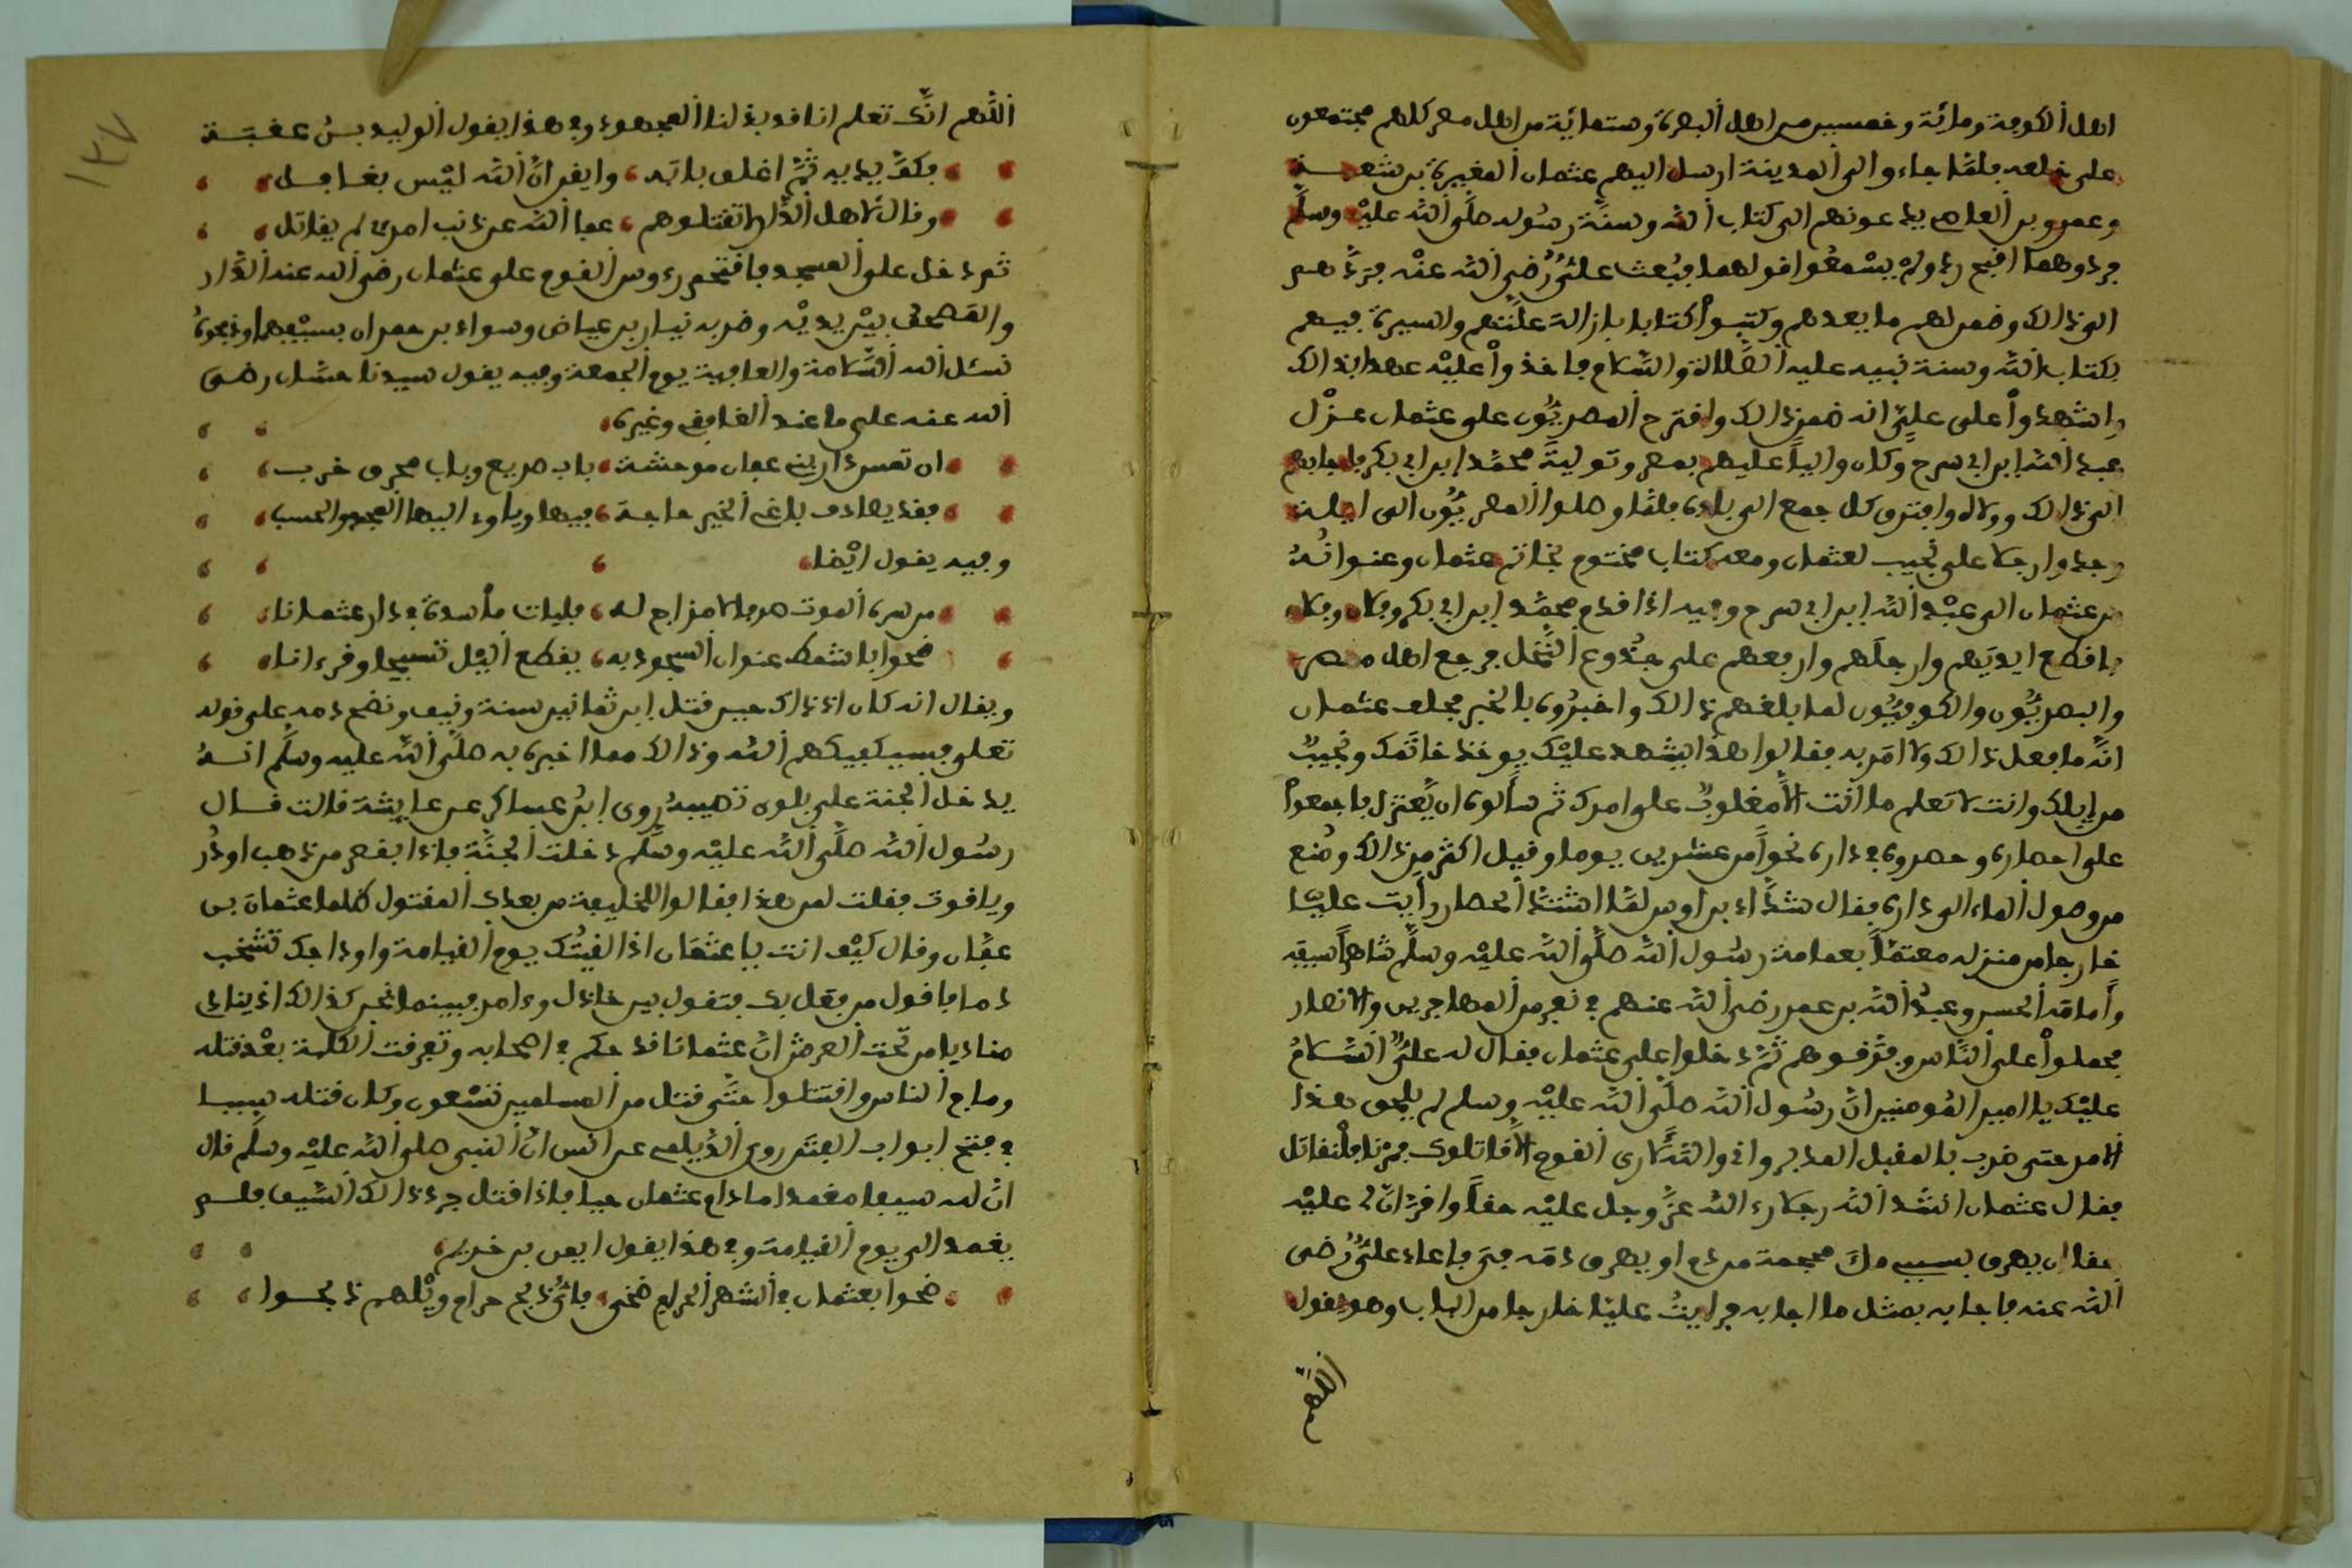 اهل الكوفة ومائة وخمسين من اهل البصرة وستمائة من اهل مصر كلهم مجتمعون
على خلعه فلما جاءوا الى المدينة ارسل اليهم عثمان المغيرة بن شعبة
وعمرو بن العاص يدعونهم الى كتاب الله وسنة رسوله صلى الله عليه وسلم
فردوهما اقبح رد ولم يسمعوا قولهما فبعث علي رضي الله عنه فردهم
الى ذالك وضمن لهم ما يعدهم وكتبوا كتابا بازالة علتهم والسيرة فيهم
بكتاب الله وسنة نبيه عليه الصلاة والسلام فاخذوا عليه عهدا بذالك
واشهدوا على علي انه ضمن ذالك واقترح المصريون على عثمان عزل
عبد الله ابن ابي سرح وكان واليا عليهم بمصر وتولية محمد ابن ابي بكر فاجابهم
الى ذالك وولاه وافترق كل جمع الى بلده فلما وصلوا المصريون الى ايلة
وجدوا رجلا على نجيب لعثمان ومعه كتاب مختوم بخاتم عثمان وعنوانه
من عثمان الى عبد الله ابن ابي سرح وفيه اذا قدم محمد ابن ابي بكر وفلان وفلان
فاقطع ايديهم وارجلهم وارفعهم على جذوع النخل فرجع اهل مصر
والبصريون والكوفيون لما بلغهم ذالك واخبروه بالخبر فحلف عثمان
انه ما فعل ذالك ولا امر به فقالوا هذا اشهد عليك يوخذ خاتمك ونجيب
من ابلك وانت لا تعلم ما انت الا مغلوب على امرك ثم سالوه ان يعتزل فاجمعوا
على احصاره وحصروه في داره نحوا من عشرين يوما وقيل اكثر من ذالك ومنع
من وصول الماء الى داره فقال شداد بن اوس لما اشتد الحصار رايت عليا
خارجا من منزله معتما بعمامة رسول الله صلى الله عليه وسلم شاهرا سيفه
وامامه الحسن وعبد الله بن عمر رضي الله عنهم في نفر من المهاجرين والانصار
فحملوا على الناس وفرقوهم ثم دخلوا على عثمان فقال له علي السلام
عليك يا امير المومنين ان رسول الله صلى الله عليه وسلم لم يلحق هذا
الامر حتى ضرب بالمقبل المدبر واني والله لا ارى القوم الا قاتلوك فمرنا فلنقاتل
فقال عثمان انشد الله رجلا رءا لله عز وجل عليه حقا واقر ان لي عليه
حقا ان يهرق بسببي ملء محجمة من دم او يهرق دمه في فاعاد علي رضي
الله عنه فاجابه بمثل ما اجابه فرايت عليا خارجا من الباب وهو يقول
اللهم
١٣٧
اللهم انك تعلم انا قد بذلنا المجهود وفي هذا يقول الوليد بن عقبة
فكف يديه ثم اغلق بابه وايقن ان الله ليس بغافل
وقال لاهل الدار لا تقتلوهم عفا الله عن ذنب امرئ لم يقاتل
ثم دخل على المسجد فاقتحم رءوس القوم على عثمان رضي الله عنه الدار
والمصحف بين يديه وضربه نيار بن عياض وسواد بن حمران بسيفهما وذبحوه
نسئل الله السلامة والعافية يوم الجمعة وفيه يقول سيدنا حسان رضي
الله عنه على ما عند الغافقي وغيره
ان تمس دار بني عفان موحشة باب صريع وباب محرق خرب
فقد يصادف باغي الخير حاجته فيها وياوي اليها المجد والحسب
وفيه يقول ايضا
من سره الموت صرفا لا مزاج له فليات ماسدة في دار عثمانا
ضحوا باشمط عنوان السجود به يقطع الليل تسبيحا وقرءانا
ويقال انه كان اذ ذاك حين قتل ابن ثمانين سنة ونيف ونضح دمه على قوله
تعلى فسيكفيكهم الله وذالك مما اخبره به صلى الله عليه وسلم انه
يدخل الجنة على بلوى تصيبه روى ابن عساكر عن عايشة قالت قال
رسول الله صلى الله عليه وسلم دخلت الجنة فاذا بقصر من ذهب او در
وياقوت فقلت لمن هذا فقالوا للخليفة من بعدك المقتول ظلما عثمان بن
عفان وقال كيف انت يا عثمان اذا لقيتك يوم القيامة واوداجك تشخب
دما فاقول من فعل بك فتقول بين خاذل وءامر فبينما نحن كذالك اذ ينادي
مناديا من تحت العرش ان عثمانا قد حكم في اصحابه وتفرقت الكلمة بعد قتله
وماج الناس واقتتلوا حتى قتل من المسلمين تسعون وكان قتله سببا
في فتح ابواب الفتن روى الديلمي عن انس ان النبي صلى الله عليه وسلم قال
ان لله سيفا مغمدا ما دام عثمان حيا فاذا قتل جرد ذالك السيف فلم
يغمد الى يوم القيامة وفي هذا يقول ايمن بن خريم
ضحوا بعثمان في الشهر الحرام ضحى فاي ذبح حرام ويلهم ذبحوا